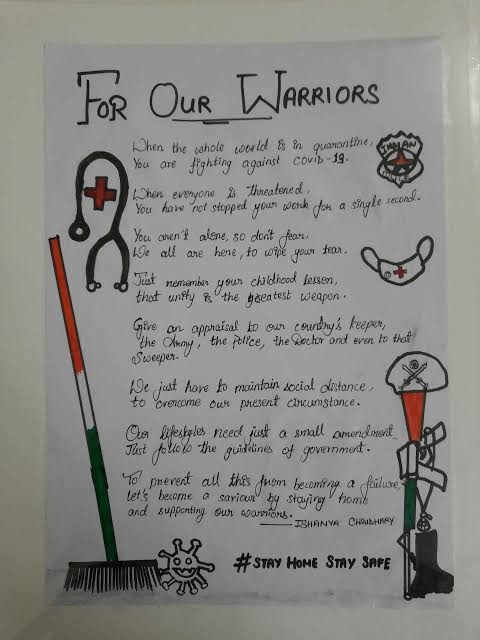 FOR OUR WARRIORS
When the whole world is in quarantine,
You are fighting against covid-19.
INDIAN
POLICE
When everyone is threatened,
You have not stopped your work for a single second.
You aren't alone, so don't fear,
We all are here, to wipe your tear.
Just remember your childhood lesson,
that unity is the greatest weapon.
Give an appraisal to our country's keeper,
the Army, the police, the Doctor and even to that
Sweeper.
We just have to maintain social distance,
to overcome our present circumstance.
Our lifestyles need just a small amendment
Just follow the guidelines of government.
To prevent all this from becoming a failure,
let's become a saviour by staying home
and supporting our warriors.
— ISHANYA CHOWDHARY
#STAY HOME STAY SAFE